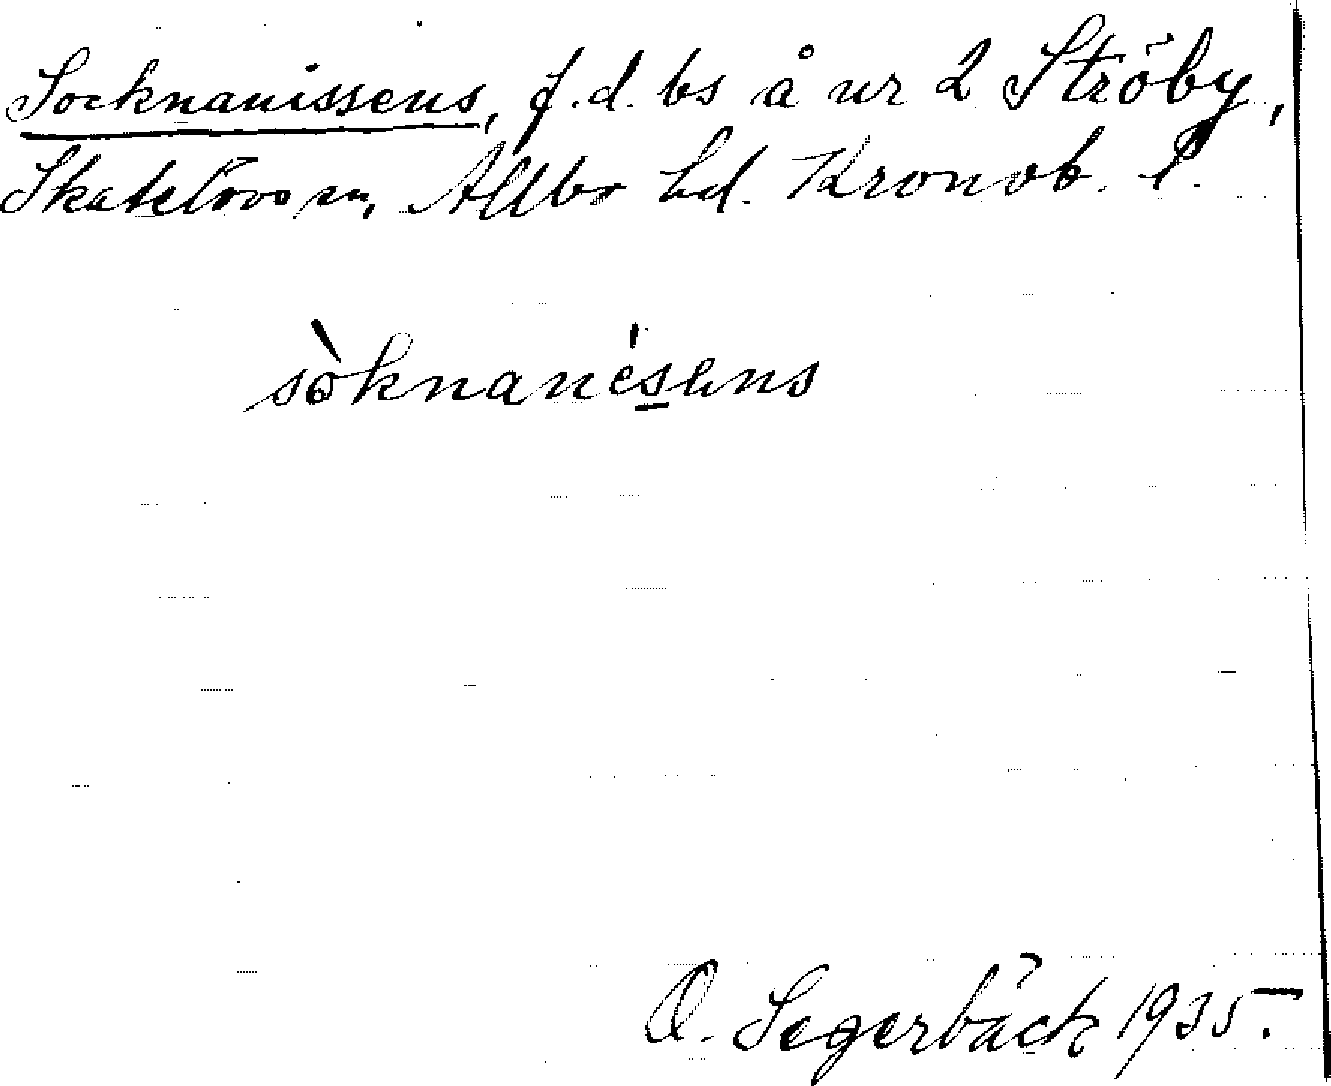 Socknanissens, f.d. bs å nr 2 Ströby,
Skatelövs sn, Allbo hd. Kronob. l.
sòknanésens
O. Segerbäck 1935.